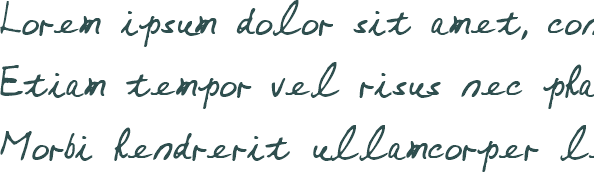 Lorem ipsum dolor sit amet, con
Etiam tempor vel risus nec pha
Morbi hendrerit ullamcorper l